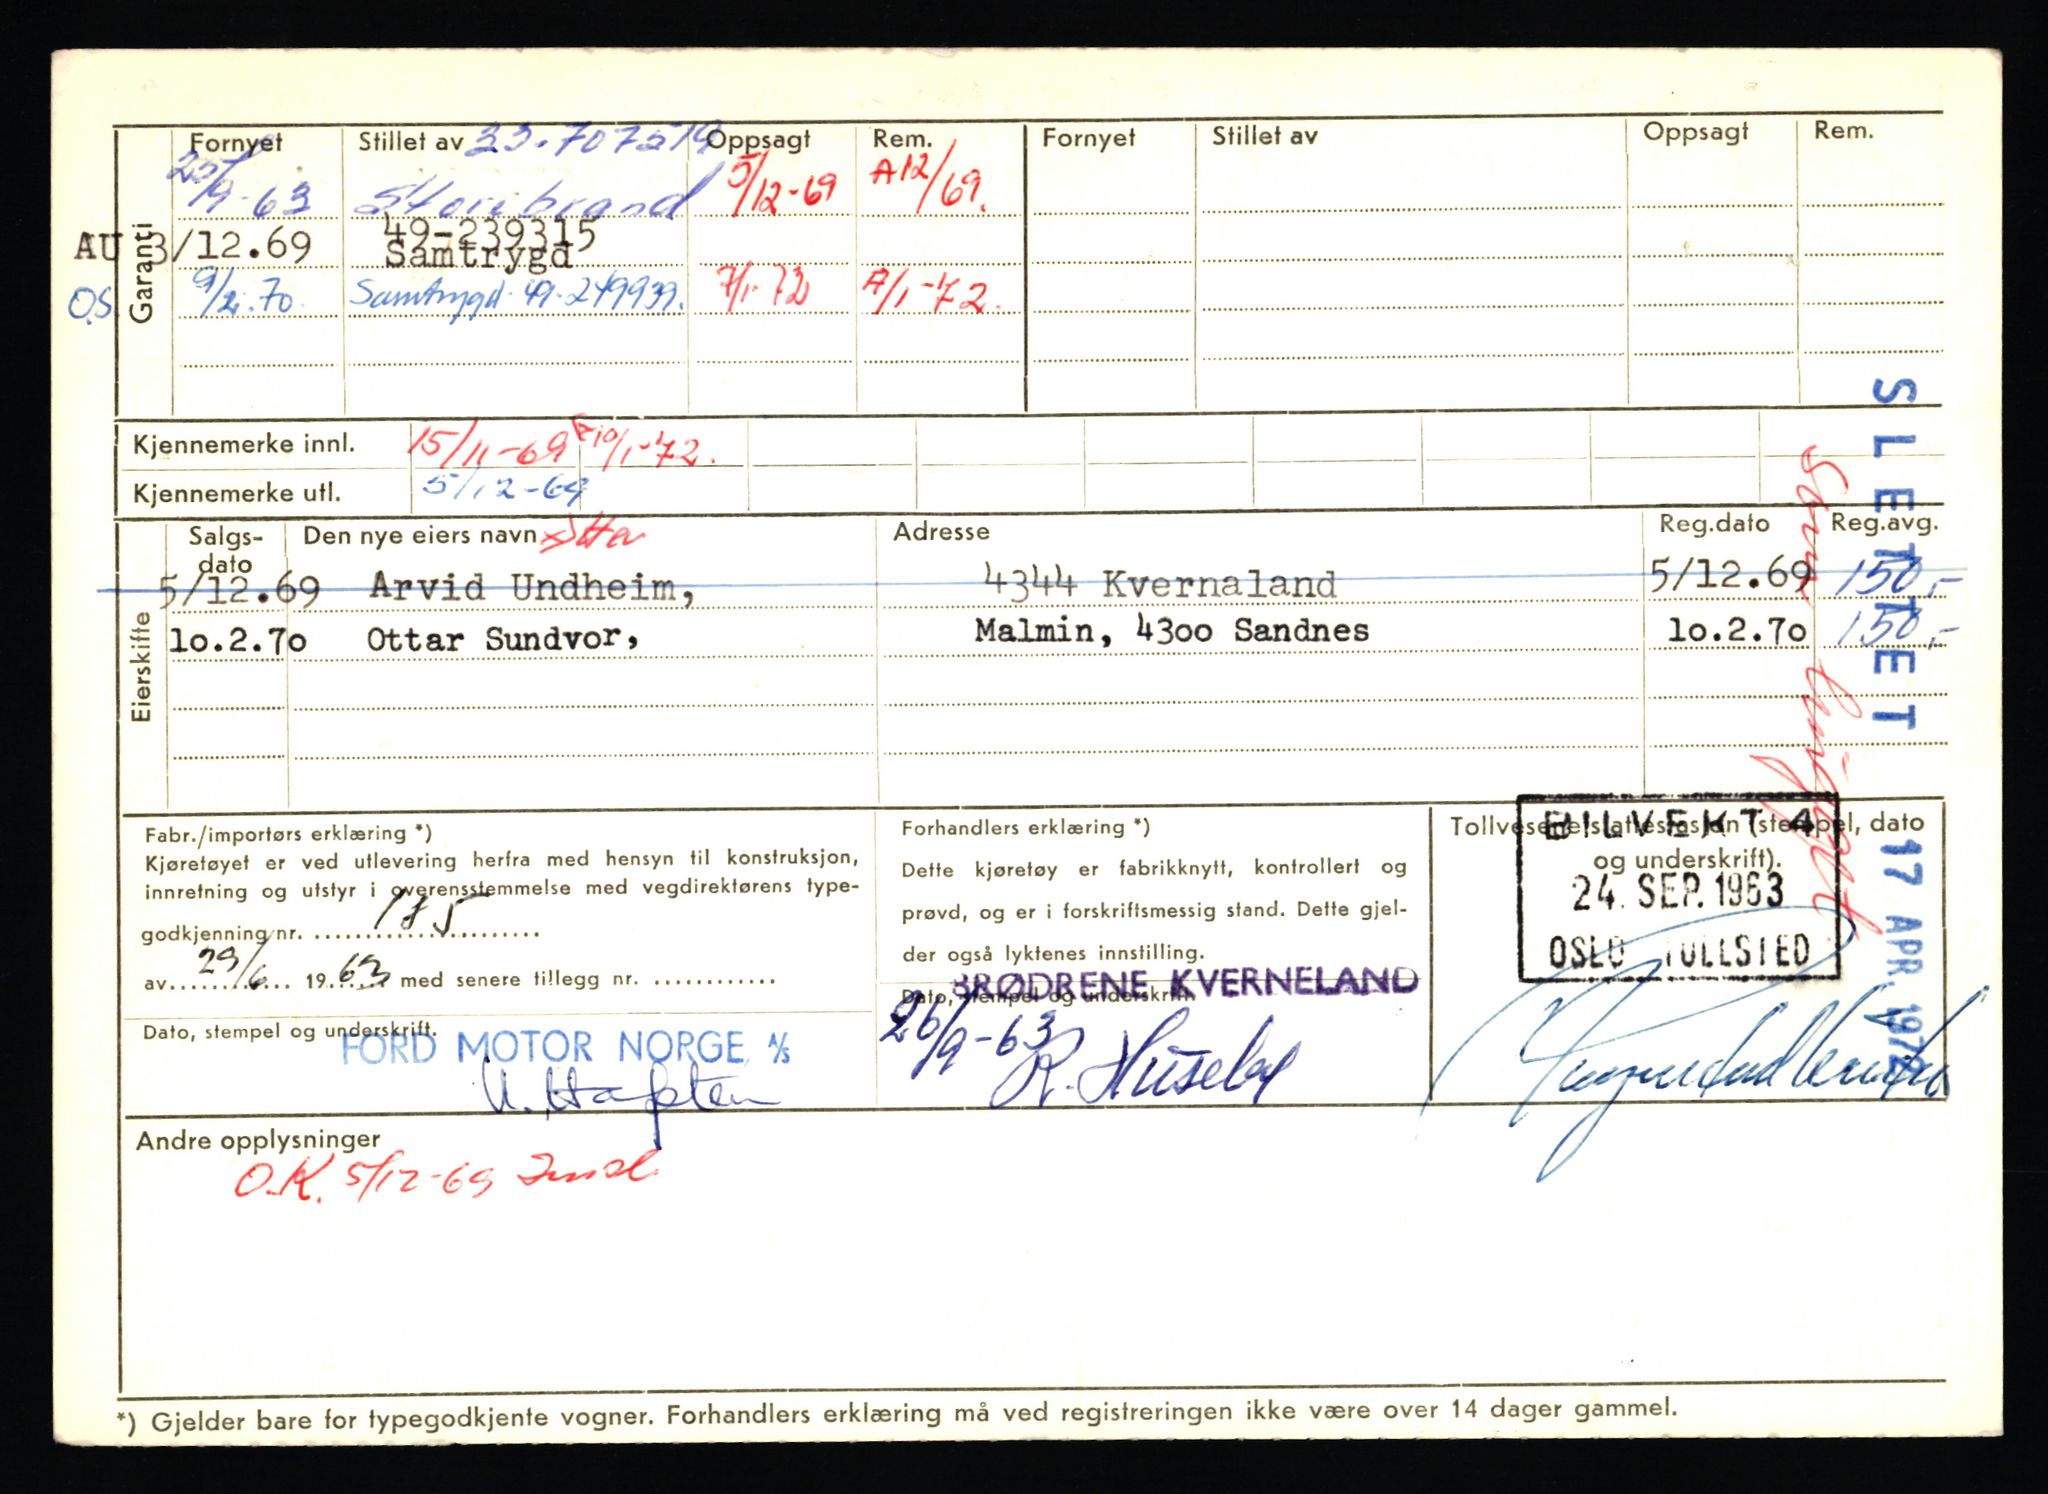 Fornyet Stillet av 33-707519 Oppsagt Rem. Fornyet Stillet av Oppsagt Rem.
25/9-63 Storebrand 5/12-69 A12/69.
Garanti
AU 3/12.69 49-239315
Samtrygd
O.S. 9/2.70. Samtrygd 49-249939. 7/1-72 A/1-72.
Kjennemerke innl. 15/11-69 10/1-72.
Kjennemerke utl. 5/12-69
Eierskifte
Salgs-dato Den nye eiers navn Adresse Reg.dato Reg.avg.
5/12.69 Arvid Undheim, 4344 Kvernaland 5/12.69 150,-
10.2.70 Ottar Sundvor, Malmin, 4300 Sandnes 10.2.70 150,-
SLETTET
17 APR. 1972
Fabr./importørs erklæring *)
Kjøretøyet er ved utlevering herfra med hensyn til konstruksjon,
innretning og utstyr i overensstemmelse med vegdirektørens type-
godkjenning nr. 175
av 29/6 1963 med senere tillegg nr.
Dato, stempel og underskrift.
FORD MOTOR NORGE A/S
Forhandlers erklæring *)
Dette kjøretøy er fabrikknytt, kontrollert og
prøvd, og er i forskriftsmessig stand. Dette gjel-
der også lyktenes innstilling.
Dato, stempel og underskrift.
BRØDRENE KVERNELAND
26/9-63 R. Huseby
Tollvesenets attestasjon (stempel, dato
og underskrift).
BILVEKT 4
24. SEP. 1963
OSLO TOLLSTED
Andre opplysninger
O.K. 5/12-69
*) Gjelder bare for typegodkjente vogner. Forhandlers erklæring må ved registreringen ikke være over 14 dager gammel.